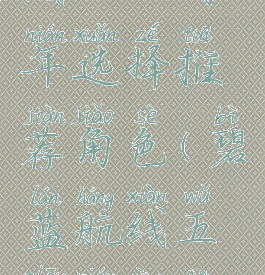 nián xuǎn zé tuī
年选择推
jiàn jiǎo sè bì
荐角色(碧
lán háng xiàn wǔ
蓝航线五